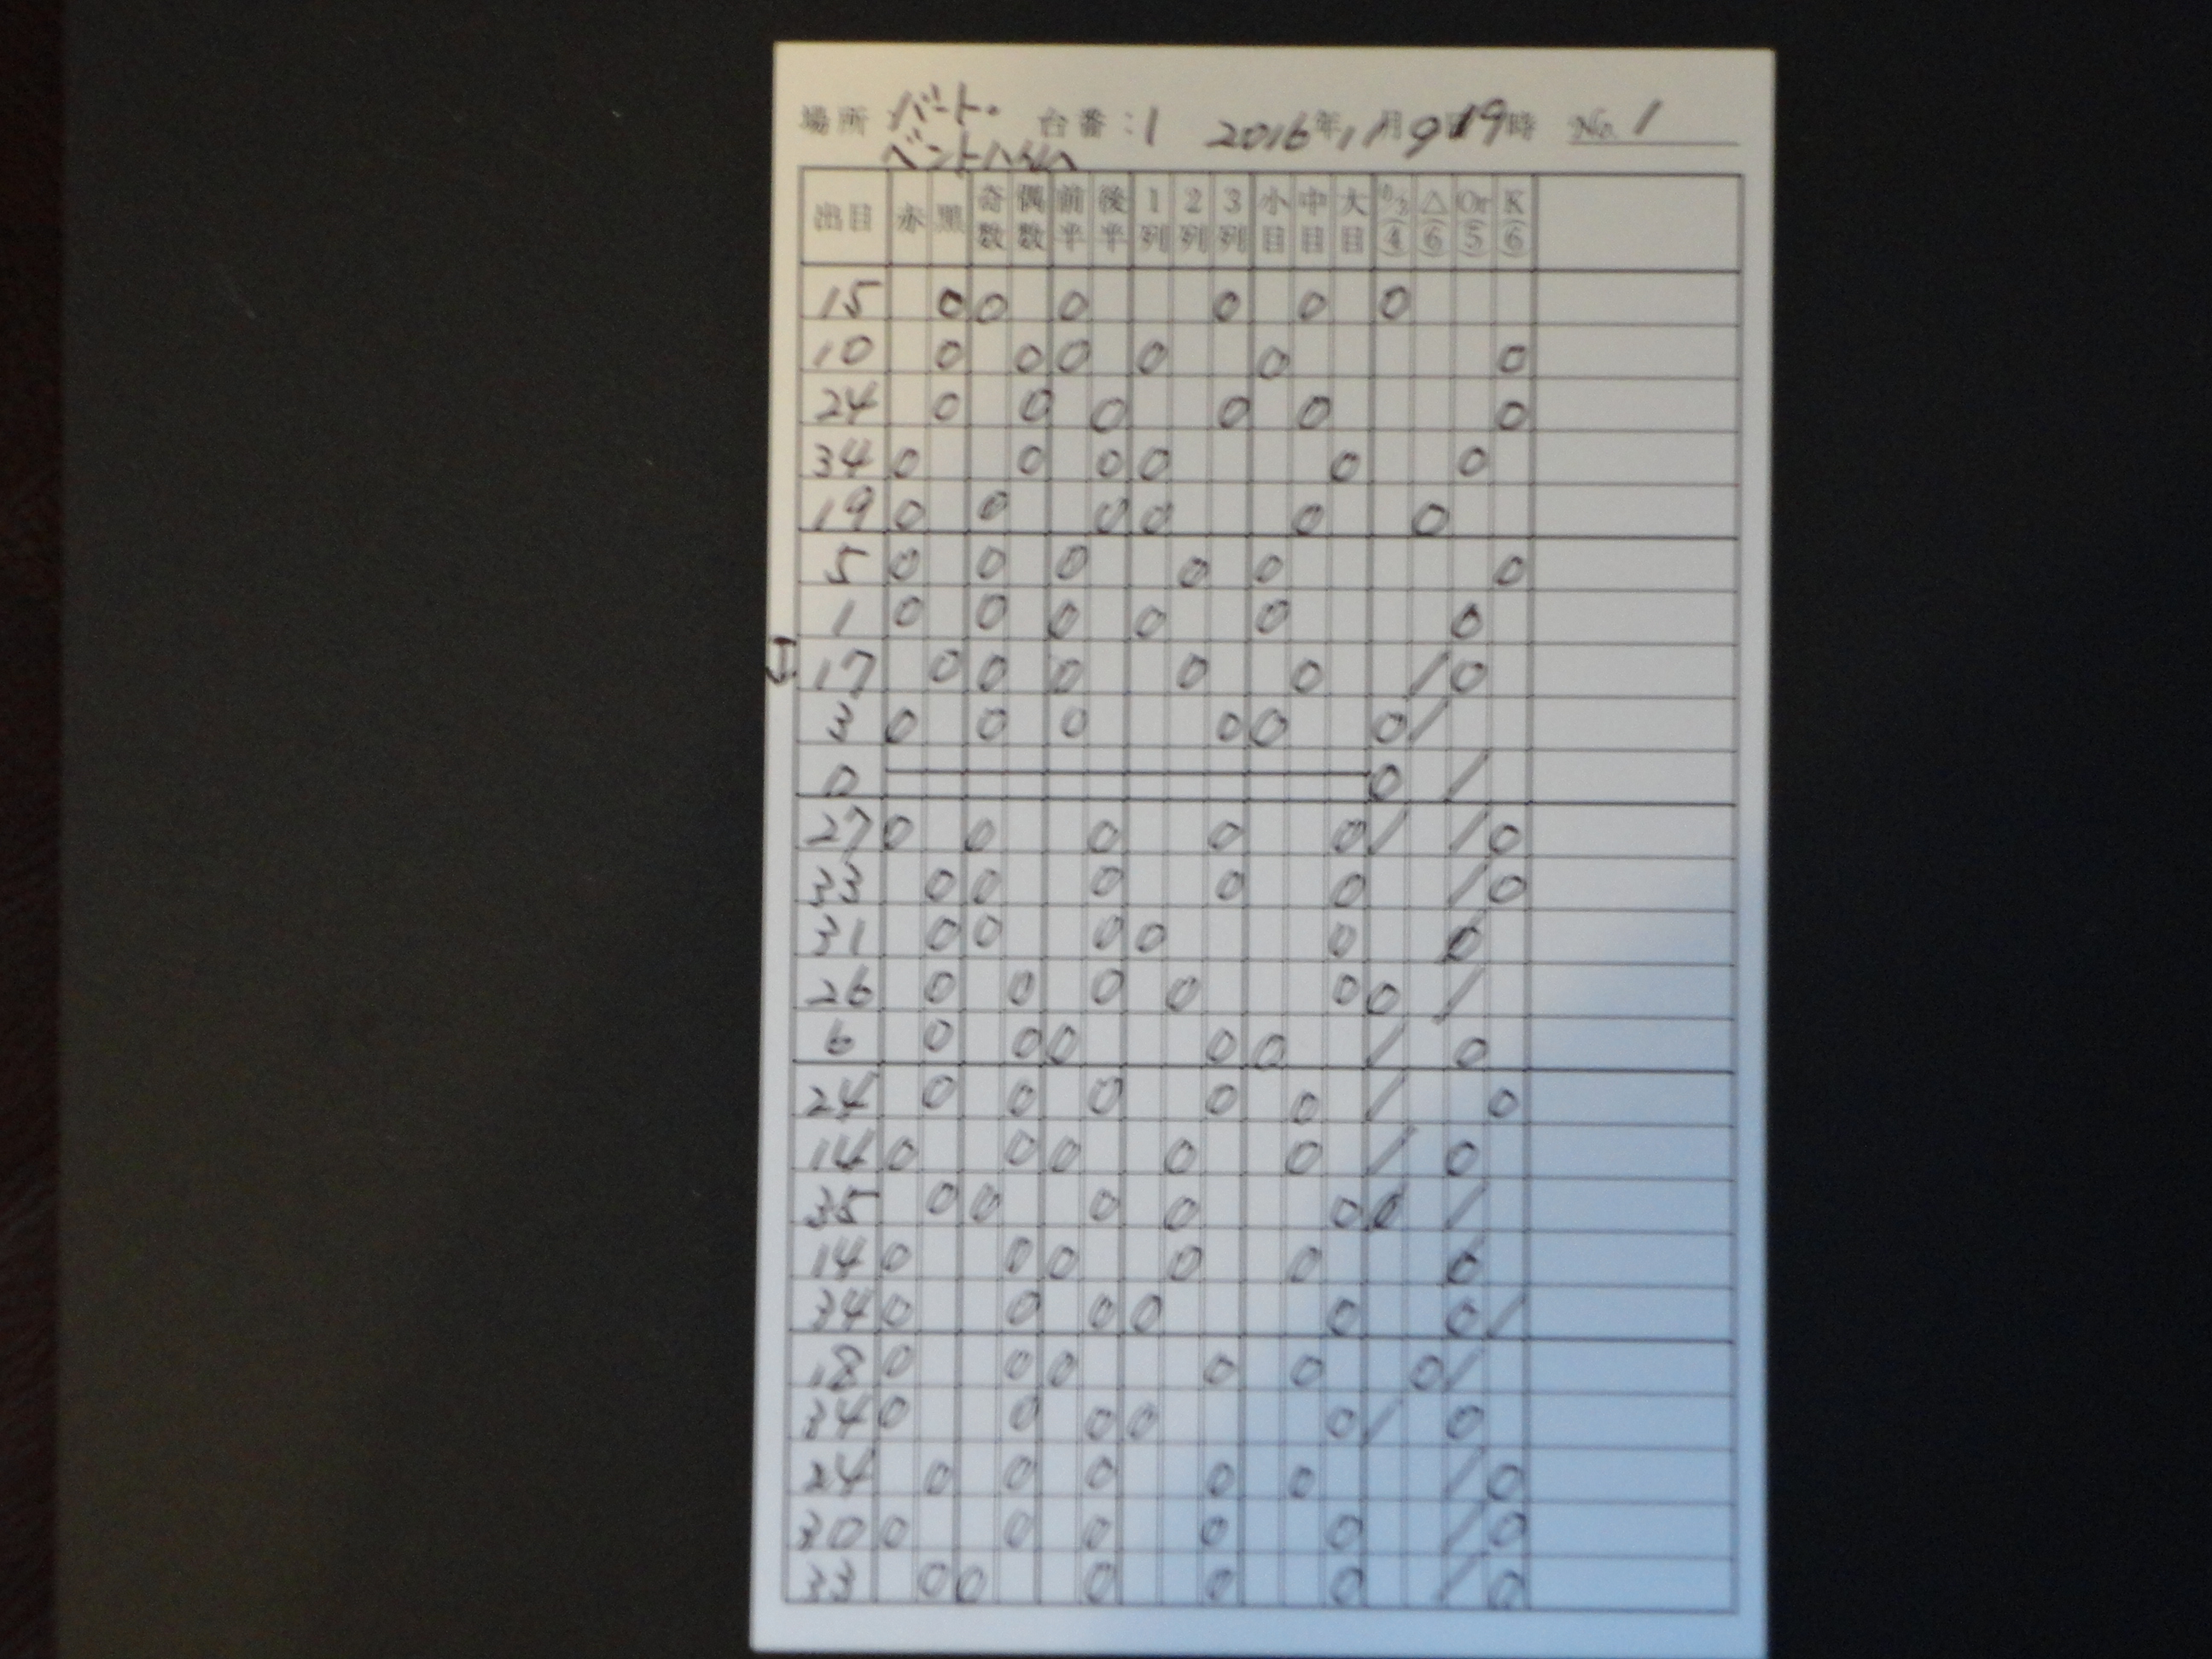 場所 バート. 台番:1 2016年11月9日19時 No. 1
ベントハイム
出目 赤 黒 奇数 偶数 前半 後半 1列 2列 3列 小目 中目 大目 0/3(4) △(6) Or(5) K(6)
15 0 0 0 0 0 0
10 0 0 0 0 0 0
24 0 0 0 0 0 0
34 0 0 0 0 0 0
19 0 0 0 0 0 0
5 0 0 0 0 0 0
1 0 0 0 0 0 0
17 0 0 0 0 0 / 0
3 0 0 0 0 0 0 /
0 0 /
27 0 0 0 0 0 / / 0
33 0 0 0 0 0 / 0
31 0 0 0 0 0 0
26 0 0 0 0 0 0 /
6 0 0 0 0 0 / 0
24 0 0 0 0 0 / 0
14 0 0 0 0 0 / 0
35 0 0 0 0 0 0 /
14 0 0 0 0 0 0
34 0 0 0 0 0 0 /
18 0 0 0 0 0 0 /
34 0 0 0 0 0 / 0
24 0 0 0 0 0 / 0
30 0 0 0 0 0 / 0
33 0 0 0 0 0 / 0